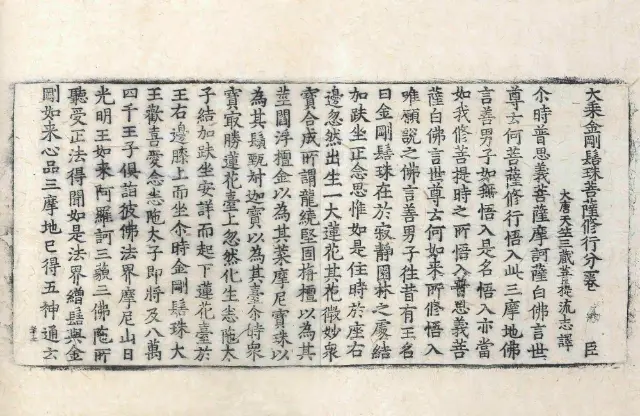 大乘金剛髻珠菩薩修行分一卷 臣
大唐天竺三藏菩提流志譯
尒時普思義菩薩摩訶薩白佛言世
尊云何菩薩修行悟入此三摩地佛
言善男子如無悟入是名悟入亦當
如我修菩提時之所悟入普思義菩
薩白佛言世尊云何如來所修悟入
唯願說之佛言善男子往昔有王名
曰金剛髻珠在於寂靜園林之處結
加趺坐正念思惟如是住時於座右
邊忽然出生一大蓮花其花微妙衆
寶合成所謂龍繞堅固栴檀以為其
莖閻浮檀金以為其葉摩尼寶珠以
為其鬚甄叔迦寶以為其臺尒時衆
寶取勝蓮花臺上忽然化生志陁太
子結加趺坐安詳而起下蓮花臺於
王右邊膝上而坐尒時金剛髻珠大
王歡喜愛念志陁太子即將及八萬
四千王子俱詣彼佛法界摩尼山日
光明王如来阿羅訶三藐三佛陁所
聽受正法得聞如是法界繒髻與金
剛如来心品三摩地已得五神通玄